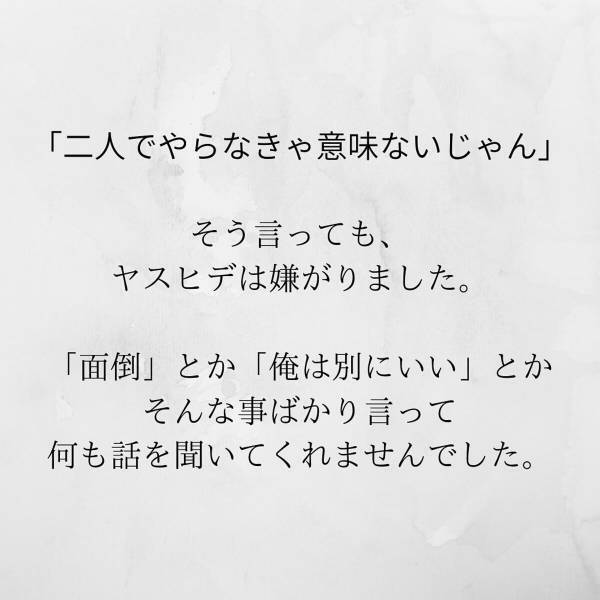 「二人でやらなきゃ意味ないじゃん」
そう言っても、
ヤスヒデは嫌がりました。
「面倒」とか「俺は別にいい」とか
そんな事ばかり言って
何も話を聞いてくれませんでした。